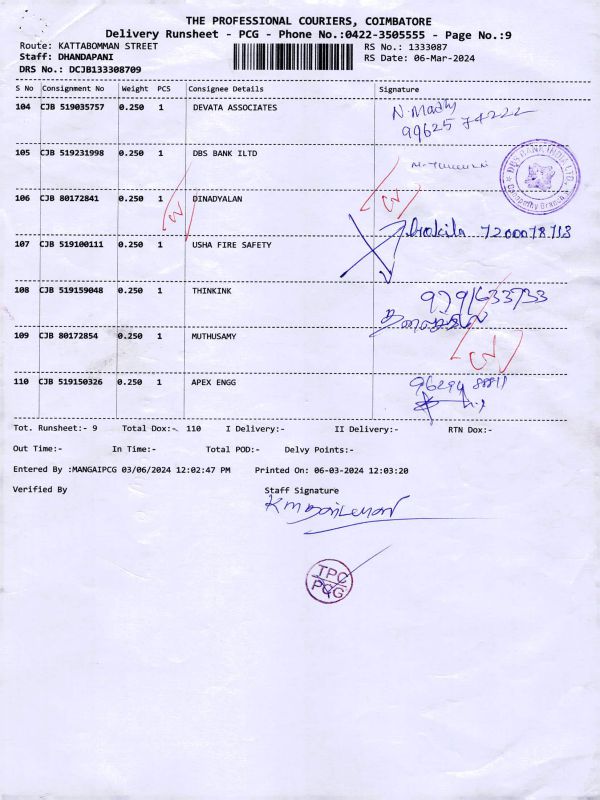 THE PROFESSIONAL COURIERS, COIMBATORE
Delivery Runsheet - PCG - Phone No.:0422-3505555 - Page No.:9
Route: KATTABOMMAN STREET RS No.: 1333087
Staff: DHANDAPANI RS Date: 06-Mar-2024
DRS No.: DCJB133308709
S No Consignment No Weight PCS Consignee Details Signature
104 CJB 519035757 0.250 1 DEVATA ASSOCIATES N. Madhy
99625 74222
105 CJB 519231998 0.250 1 DBS BANK ILTD
DBS BANK INDIA LTD.
Branch
106 CJB 80172841 0.250 1 DINADYALAN
107 CJB 519100111 0.250 1 USHA FIRE SAFETY 7200078713
108 CJB 519159048 0.250 1 THINKINK 9791633733
109 CJB 80172854 0.250 1 MUTHUSAMY
110 CJB 519150326 0.250 1 APEX ENGG
Tot. Runsheet:- 9 Total Dox:- 110 I Delivery:- II Delivery:- RTN Dox:-
Out Time:- In Time:- Total POD:- Delvy Points:-
Entered By :MANGAIPCG 03/06/2024 12:02:47 PM Printed On: 06-03-2024 12:03:20
Verified By Staff Signature
TPC
PCG